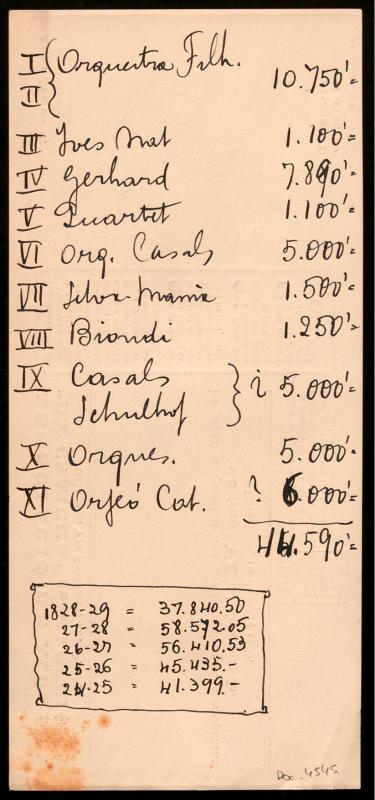 I Orquestra Filh.
II 10.750'=
III Yves Nat 1.100'=
IV Gerhard 7.890'=
V Quartet 1.100'=
VI Orq. Casals 5.000'=
VII Silva-Maria 1.500'=
VIII Biondi 1.250'=
IX Casals
Schulhof } ¿ 5.000'=
X Orques. 5.000'=
XI Orfeó Cat. ? 6.000'=
44.590'=
1828-29 = 37.840.50
27-28 = 58.572.05
26-27 = 56.410,53
25-26 = 45.435.-
24-25 = 41.399.-
Doc. 4545